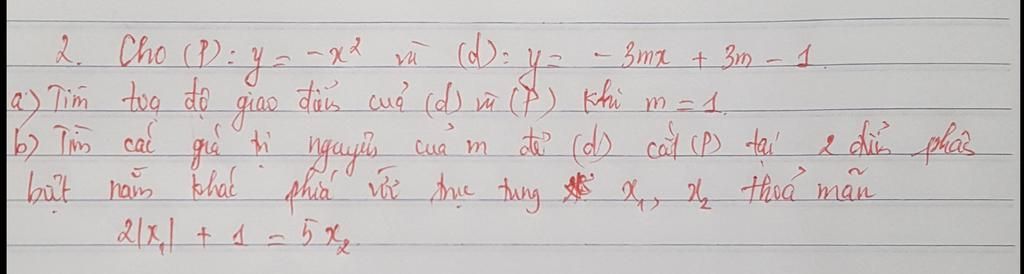 2. Cho (P): y = -x² và (d): y = -3mx + 3m - 1.
a) Tìm toạ độ giao điểm cuả (d) và (P) khi m = 1.
b) Tìm các giá trị nguyên cuả m để (d) cắt (P) tại 2 điểm phân
biệt nằm khác phiá với trục tung x₁, x₂ thoả mãn
2|x₁| + 1 = 5x₂